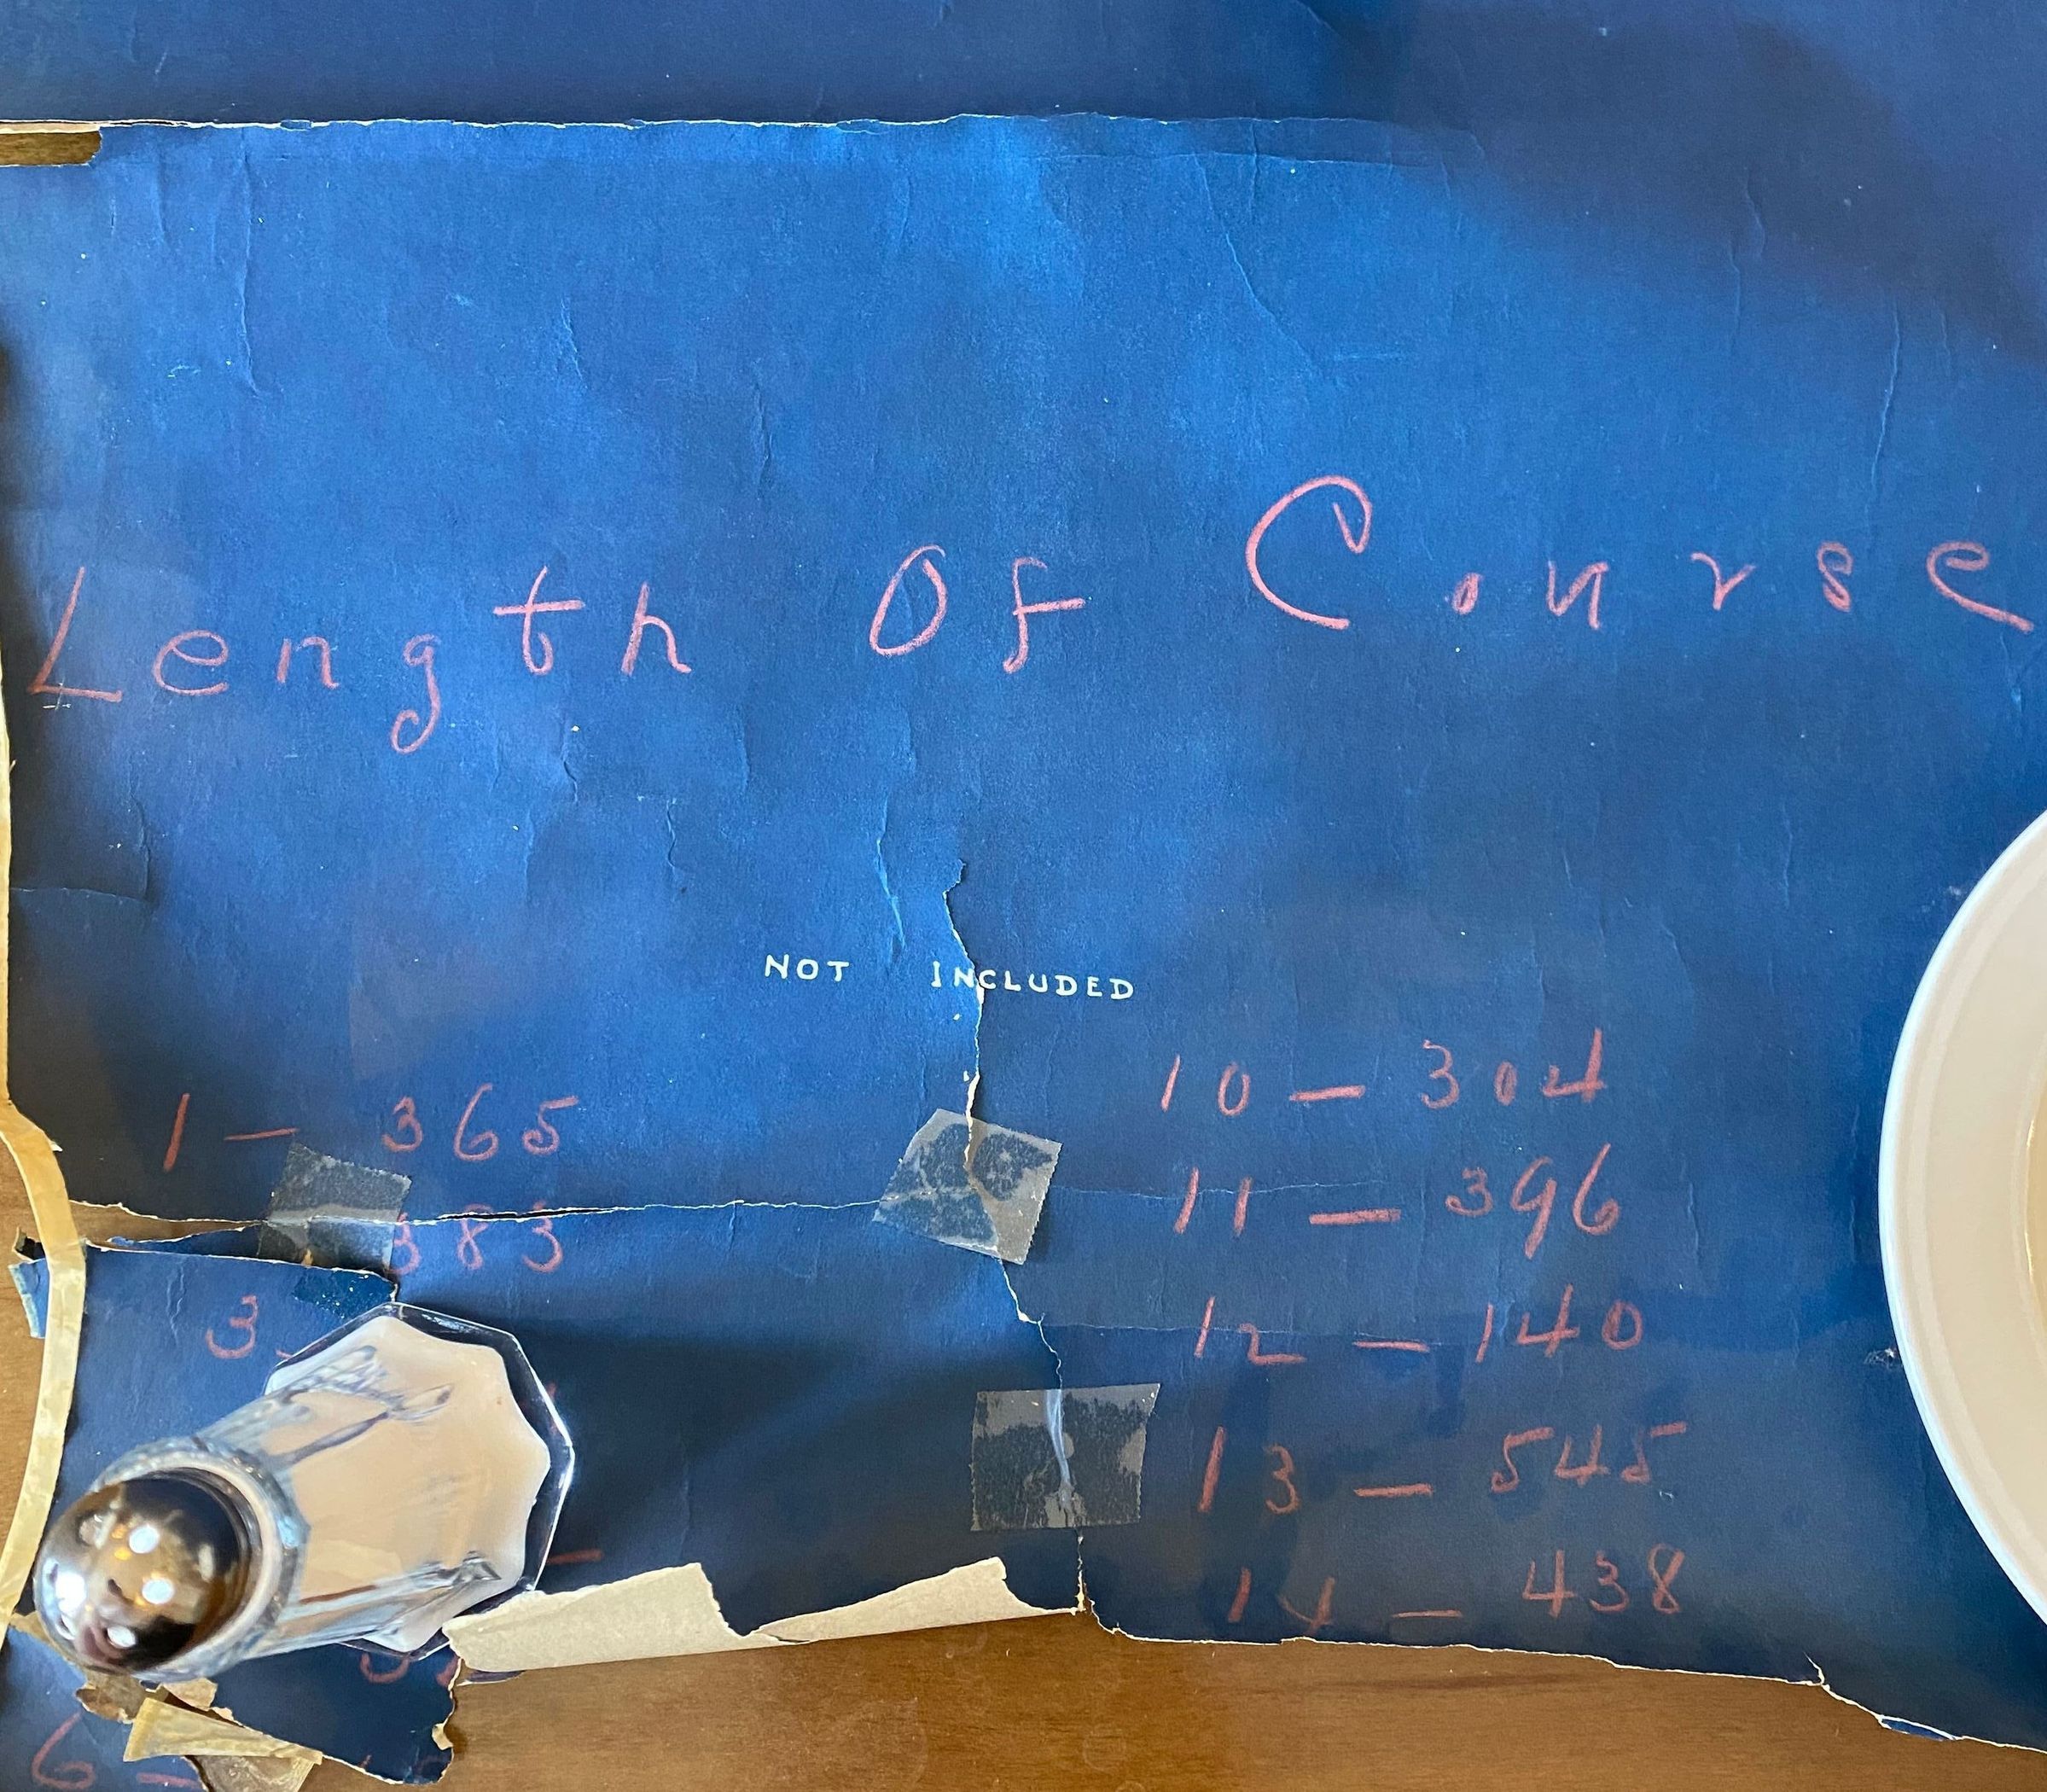 Length Of Course
NOT INCLUDED
1 - 365
383
3
6 -
10 - 304
11 - 396
12 - 140
13 - 545
14 - 438